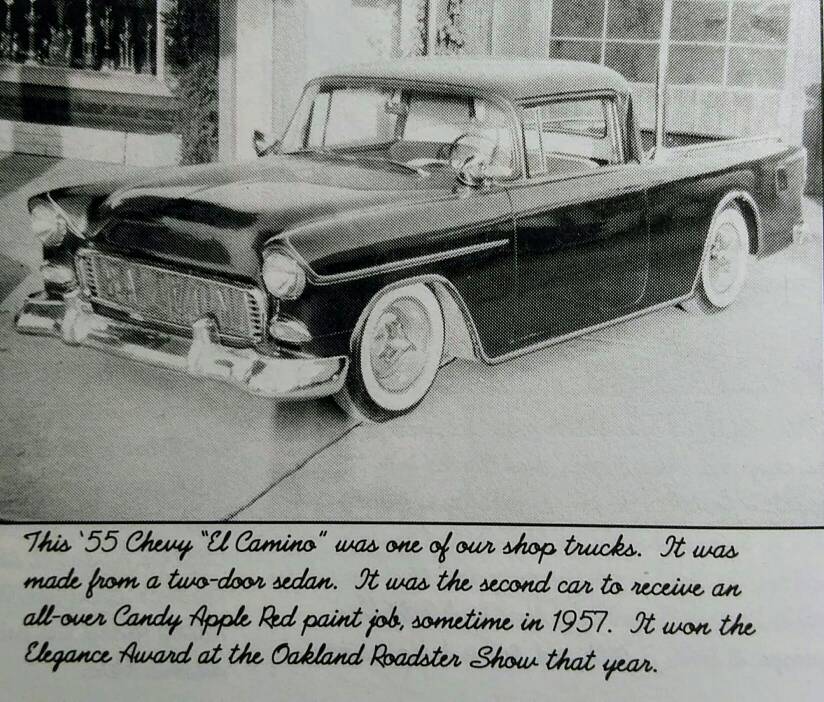 This '55 Chevy "El Camino" was one of our shop trucks. It was
made from a two-door sedan. It was the second car to receive an
all-over Candy Apple Red paint job, sometime in 1957. It won the
Elegance Award at the Oakland Roadster Show that year.